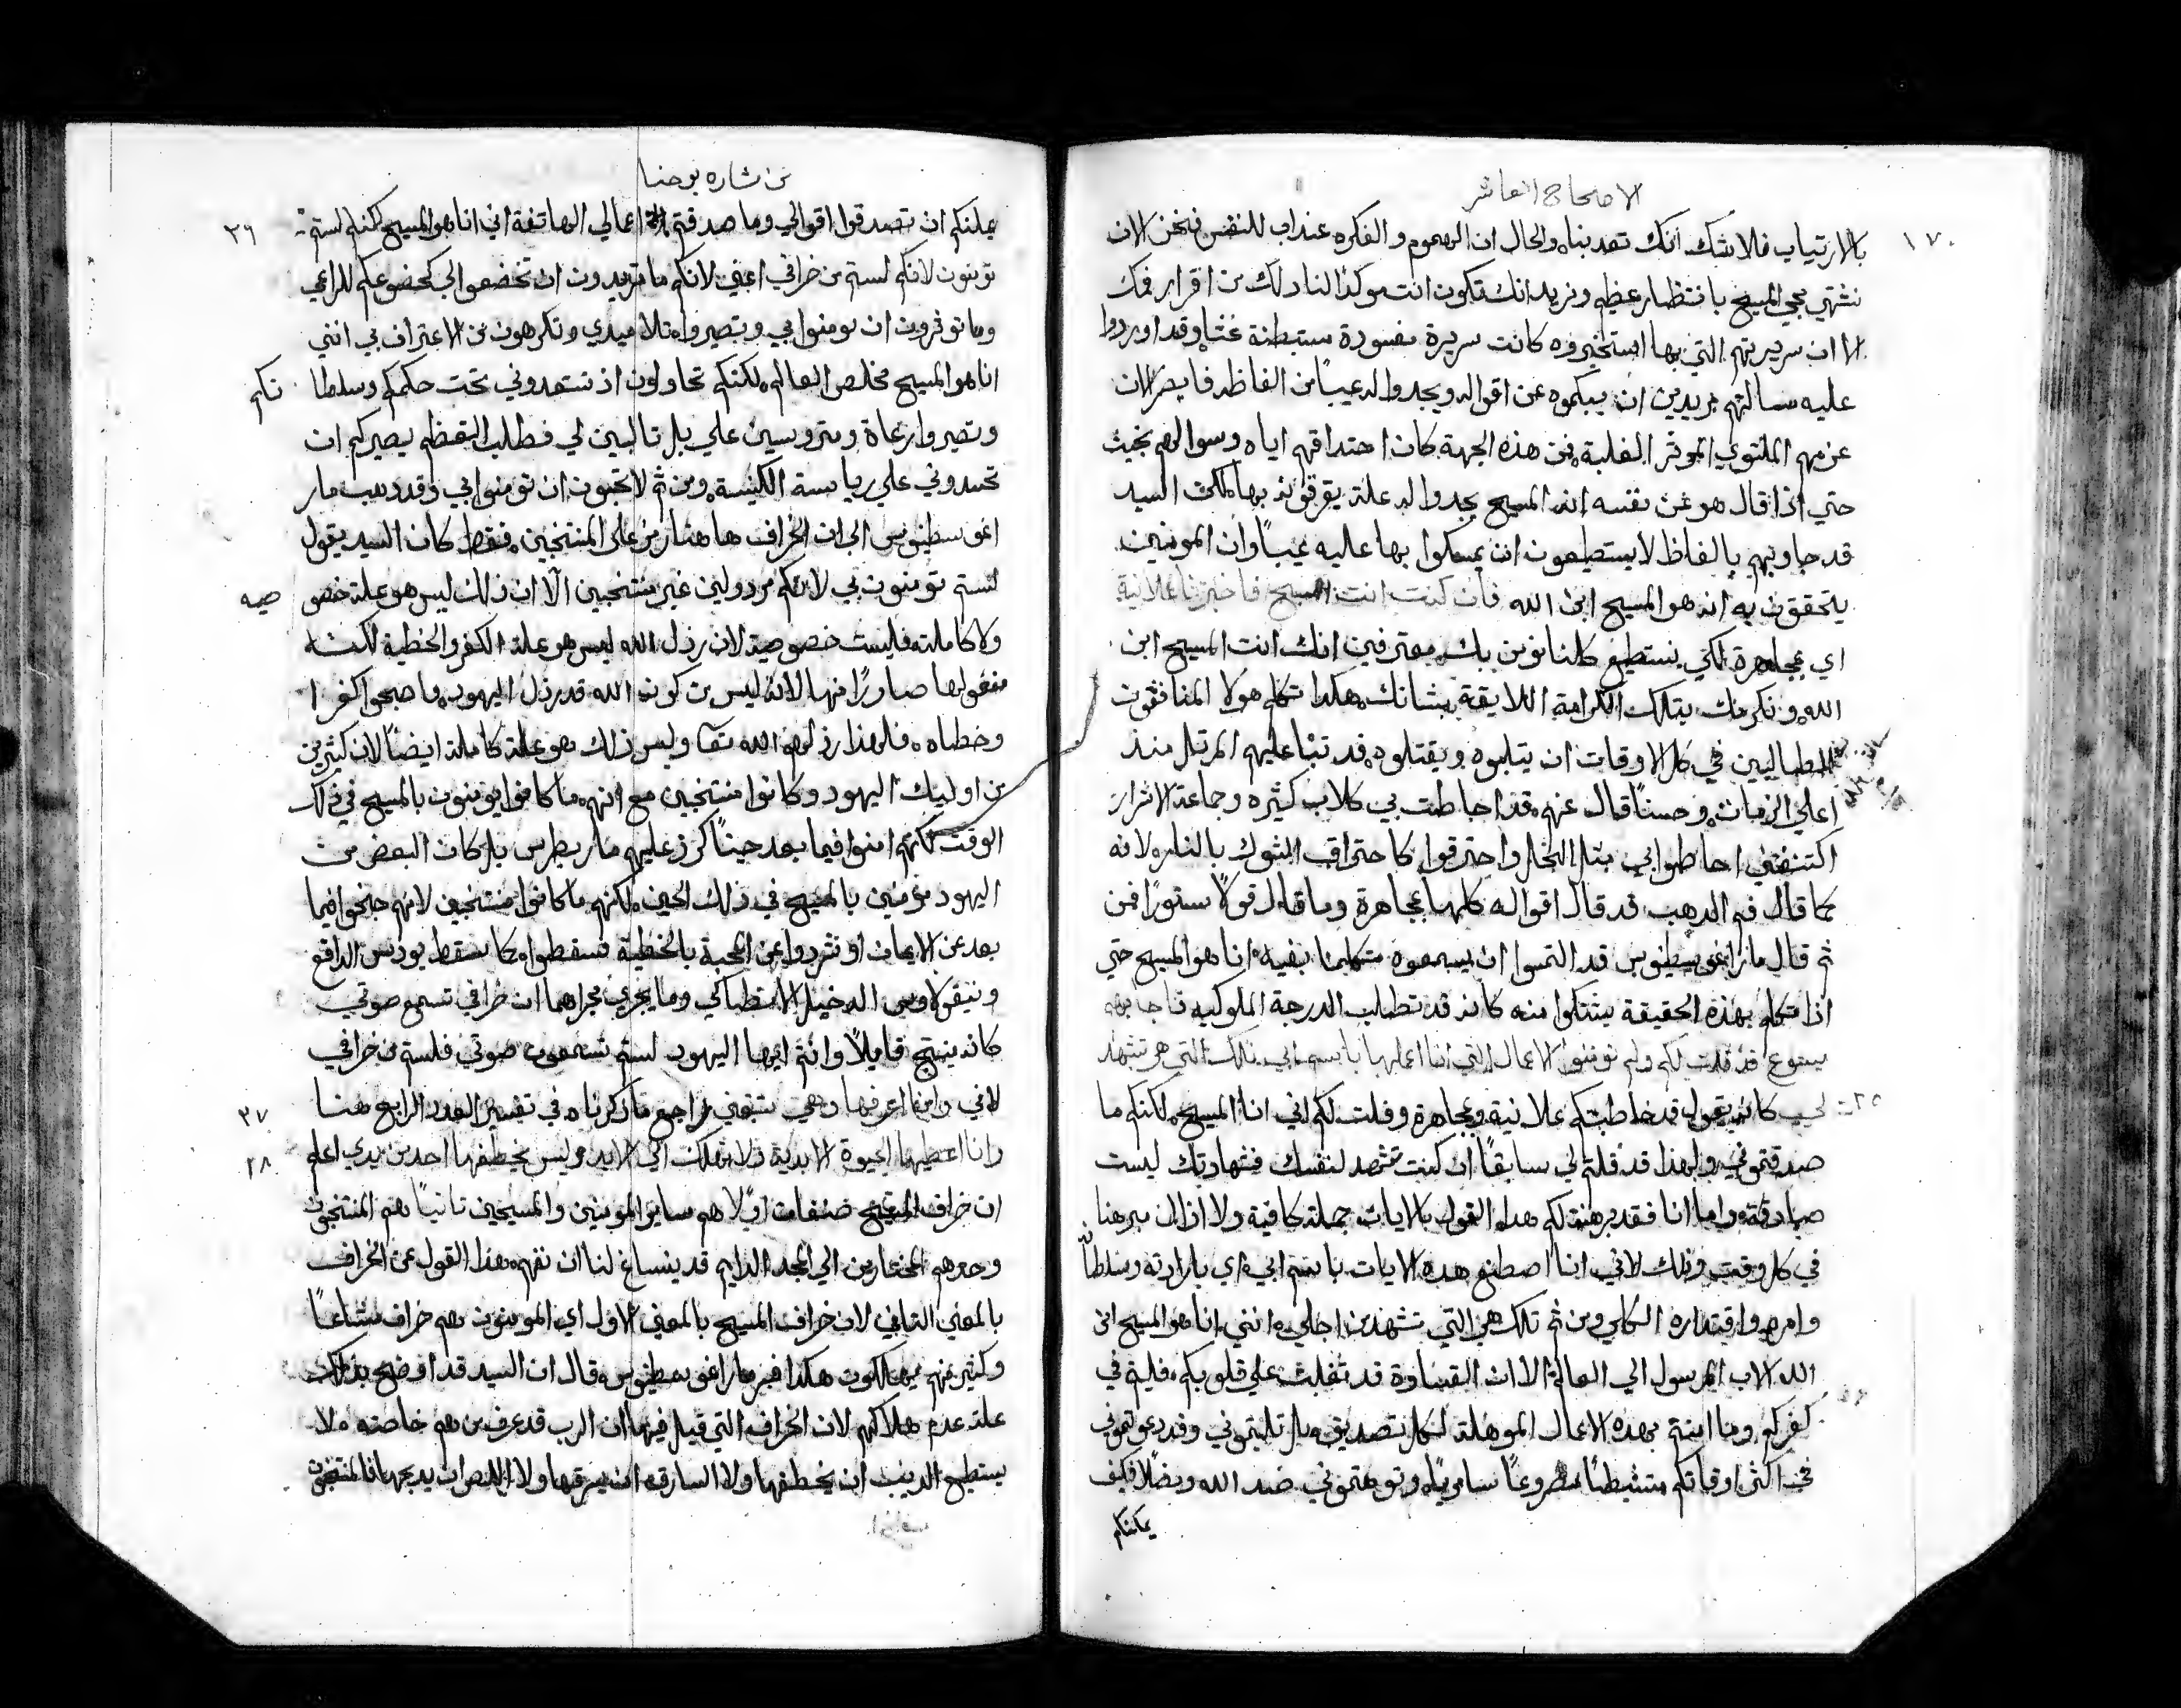 الاصحاح العاشر
١٧٠
بالارتياب فلا شك انك تعدبناه والحال ان الهموم والفكره عنداب للنفس فنحن الان
نشتهي مجي المسيح بانتظار عظيم ونريد انك تكون انت موكدًا لنا دلك من اقرار فمك
الا ان سريرتهم التي بها استخبروه كانت سريرة مفسودة مستبطنة غشًا وقد اوردوا
عليه مسالتهم مريدين ان يبكموه عن اقواله ويجدوا له عيبًا من الفاظه فابصر الان
عزمهم الملتوي الموثر الغلبة فمن هذه الجهة كان احتداقهم اياه وسوالهم بخبث
حتي اذا قال هو عن نفسه انه المسيح يجدوا له علة يقرفونه بها لكن السيد
قد جاوبهم بالفاظ لا يستطيعون ان يمسكوا بها عليه عيبًا وان المومنين
يتحققون به انه هو المسيح ابن الله فان كنت انت المسيح فاخبرنا علانية
اي مجاهرة لكي نستطيع كلنا نومن بك معترفين انك انت المسيح ابن
الله ونكرمك بتلك الكرامة اللايقة بشانك هكدا تكلم هولا المنافقون
المطاليين في كل الاوقات ان يتلبوه ويقتلوه قد تنبا عليهم المرتل منذ
اعلي الزمان وحسنًا قال عنهم قد احاطت بي كلاب كثيره وجماعة الاشرار
اكتنفتني احاطوا بي مثل النحل واحترقوا كاحتراق الشوك بالنار لانه
كما قال فم الدهب قد قال اقواله كلها مجاهرة وما قال قولًا مستورًا فمن
ثم قال مار اغوسطينوس قد التمسوا ان يسمعوه متكلمًا بفيه انا هو المسيح حتي
اذا تكلم بهذه الحقيقة يشتكوا منه كانه قد تطلب الدرجة الملوكيه فاجابهم
يسوع قد قلت لكم ولم تومنوا الاعمال التي انا اعملها باسم ابي تلك التي هي تشهد
٢٥ لي كانه يقول قد خاطبتكم علانية ومجاهرة وقلت لكم اني انا المسيح لكنكم ما
صدقتموني ولهذا قد قلتم لي سابقًا ان كنت تشهد لنفسك فشهادتك ليست
صادقة واما انا فقد برهنت لكم هدا القول بالايات جملة كافية ولا ازال مبرهنا
في كل وقت وذلك لاني انا اصطنع هده الايات باسم ابي اي بارادته وسلطانه
وامره واقتداره الكلي ومن ثم تلك هي التي تشهد من اجلي انني انا هو المسيح ابن
الله الاب المرسول الي العالم الا ان القساوة قد ثقلت علي قلوبكم فلبثم في
كفركم وما امنتم بهده الاعمال الموهلة لكل تصديق بل تلبتموني وقد دعوتموني
في اكثر اوقاتكم متشيطنًا مصروعًا سامريًا وتوهمتموني ضد الله ومضلًا فكيف
يمكنكم
من بشاره يوحنا
يمكنكم ان تصدقوا اقوالي وما صدقتم اعمالي الهاتفة اني انا هو المسيح لكنكم لستم ٢٦
تومنون لانكم لستم من خرافي اعني لانكم ما تريدون ان تخضعوا لي كخضوعكم للراعي
وما توثرون ان تومنوا بي وتصيروا تلاميدي وتكرهون من الاعتراف بي انني
انا هو المسيح مخلص العالم لكنكم تحاولون ان تستعدوني تحت حكمكم وسلطانكم
وتصيروا رعاة ومتروسين علي بل تالبين لي فطلب التعظم يصيركم ان
تحسدوني علي رياسة الكنيسة ومن ثم لا تحبون ان تومنوا بي وقد دهب مار
اغوسطينوس الي ان الخراف هاهنا رمز علي المنتخبين فقط كان السيد يقول
لستم تومنون بي لانكم مردولين غير منتخبين الا ان ذلك ليس هو علة خصوصيه
ولا كاملة فليست خصوصية لان رذل الله ليس هو علة الكفر والخطية لكنه
مفعولها صادرًا منها لانه ليس من كون الله قد رذل اليهود صاروا كفرا
وخطاه فلهذا رذلهم الله تعا وليس ذلك هو علة كاملة ايضًا لان كثيرين
من اوليك اليهود وكانوا منتخبين مع انهم ما كانوا يومنون بالمسيح في ذلك
الوقت لكنهم امنوا فيما بعد حينًا كرز عليهم مار بطرس بل كان البعض من
اليهود مومنين بالمسيح في ذلك الحين لكنهم ما كانوا منتخبين لانهم جنحوا فيما
بعد عن الايمان او شردوا عن المحبة بالخطية فسقطوا كما سقط يودس الدافع
ونيقولاوس الدخيل الانطاكي وما يجري مجراهما ان خرافي تسمع صوتي
كانه ينتج قايلًا وانتم ايها اليهود لستم تسمعون صوتي فلستم من خرافي
٢٧ واني اعرفها وهي تتبعني راجع ما ذكرناه في تفسير العدد الرابع هنا
٢٨ وانا اعطيها الحيوة الابدية ولا تهلك الي الابد وليس يخطفها احد من يدي اعلم
ان خراف المسيح صنفان اولًا هم ساير المومنين والمسيحيين ثانيًا هم المنتخبون
وحدهم المختارين الي المجد الدايم قد ينساغ لنا ان نفهم هذا القول عن الخراف
بالمعني الثاني لان خراف المسيح بالمعني الاول اي المومنون هم خراف مشاعًا
وكثير منهم يهلكون هكدا فسر مار اغوسطينوس وقال ان السيد قد اوضح بذلك
علة عدم هلاكهم لان الخراف التي قيل فيها ان الرب قد عرف من هم خاصته لا
يستطيع الديب ان يخطفها ولا السارق ان يسرقها ولا اللص ان يدبحها فالمنتخبون